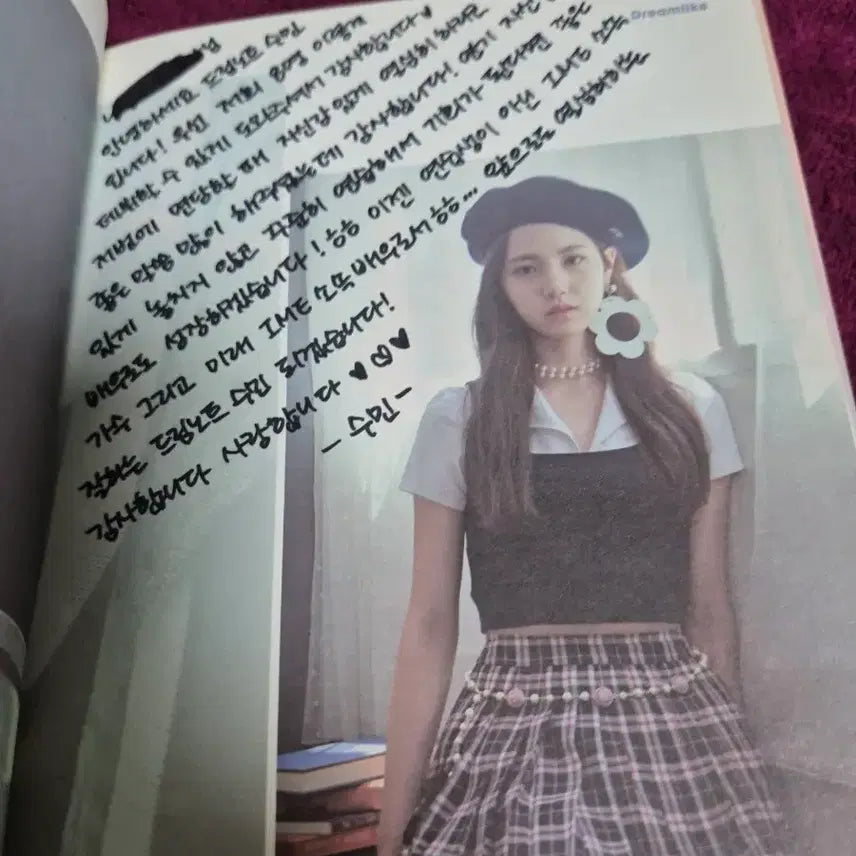 Dreamlike
안녕하세요 드림노트 수민
입니다! 우선 저희 음원 이렇게
데뷔할 수 있게 도와주셔서 감사합니다♥
저번에 면담할 때 자신감 있게 열심히 하라는
좋은 말씀 많이 해주셨는데 감사합니다! 연기
있게 놓치지 않고 꾸준히 연습해서 기회가 된다면 좋은
배우로도 성장하겠습니다! 흐흐 이젠 연습생이 아닌 IME 소속
가수 그리고 미래 IME 소속 배우로서 흐흐... 앞으로도 열심히하는
잘하는 드림노트 수민 되겠습니다!
감사합니다 사랑합니다 ♥♡♥
- 수민 -